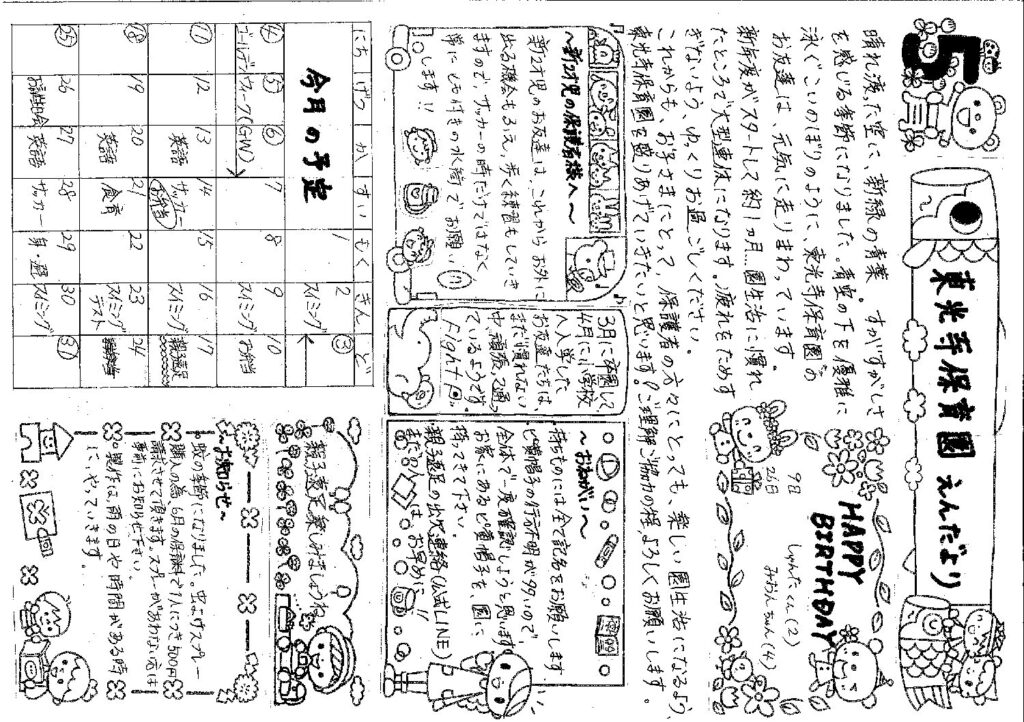 5
東光寺保育園 えんだより
晴れ渡った空に新緑の青葉。すがすがしさ
を感じる季節になりました。青空の下を優雅に
泳ぐこいのぼりのように、東光寺保育園の
お友達は、元気に走りまわっています。
新年度がスタートして約1ヵ月…園生活に慣れ
たところで大型連休になります。疲れをためす
ぎないよう、ゆっくりお過ごしください。
これからも、お子さまにとって、保護者の方々にとっても、楽しい園生活になるよう、
東光寺保育園を盛りあげていきたいと思います?ご理解ご協力の程、よろしくお願いします。
HAPPY
BIRTHDAY
9日 しゅんたくん(2)
26日 みおんちゃん(4)
〜新2才児の保護者様へ〜
新2才児のお友達は、これからお外に
出る機会もふえ、歩く練習もしていき
ますので、サッカーの時だけではなく
常にひも付きの水筒でお願い
します!!
3月に卒園して
4月に小学校
へ入学した
お友達たちは、
まだ慣れない
中、頑張って通っ
ているようです。
Fight
〜おねがい〜
持ちものには全て記名をお願いします
ピ帽子の行方不明が多いので
全体で一度確認しようと思います。
お家にあるピ帽子を、園に
持ってきて下さい。
親子遠足の出欠連絡(公式LINE)
まだの方は、お早めに!!
今月の予定
にち げつ か すい もく きん ど
1 2 ③
スイミング
④ ⑤ ⑥ 7 8 9 10
ゴールデンウィーク(GW)
スイミング お弁当
⑪ 12 13 14 15 16 17
英語 サッカー お弁当 スイミング 親子遠足
⑱ 19 20 21 22 23 24
英語 食育 スイミングテスト
㉕ 26 27 28 29 30 ㉛
お誕生会 英語 サッカー 身・歴 スイミング
親子遠足楽しみましょうね
〜お知らせ〜
。蚊の季節になりました。虫よけスプレー
購入の為、6月の保護費で1人につき500円
請求させて頂きます。スプレーがあわない方は
事前にお知らせ下さい。
。製作は雨の日や時間がある時
にいやっていきます。